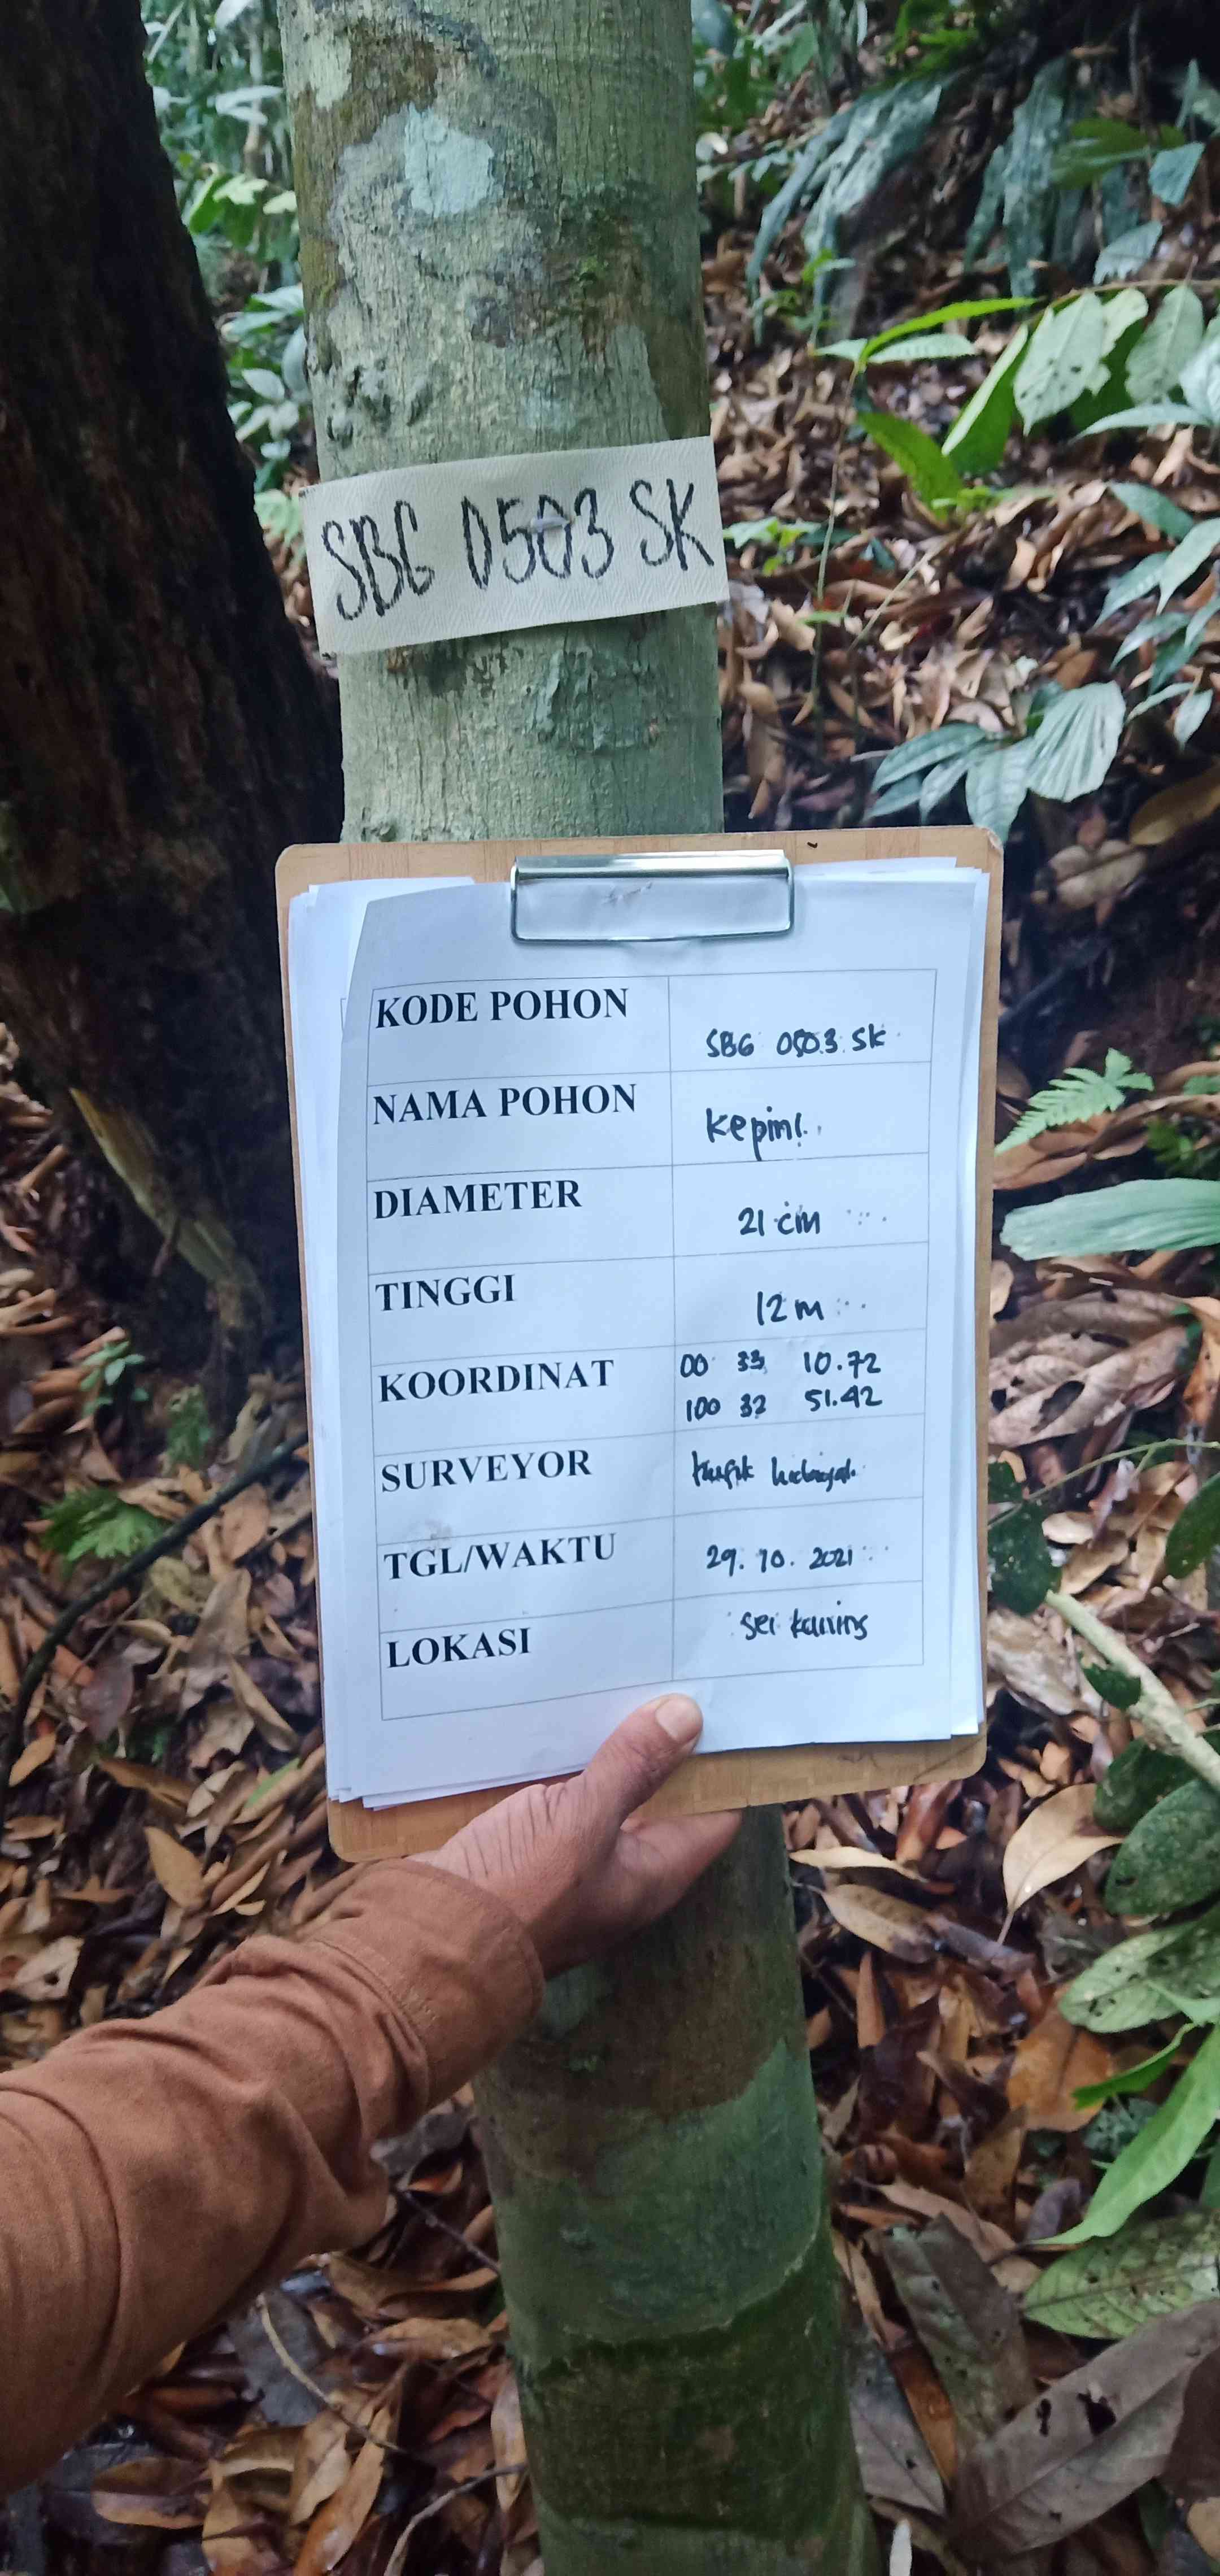 SBG 0503 SK
KODE POHON SBG 0503 SK
NAMA POHON Kepini
DIAMETER 21 cm
TINGGI 12 m
KOORDINAT 00 33 10.72
100 32 51.42
SURVEYOR
TGL/WAKTU 29. 10. 2021
LOKASI Sei